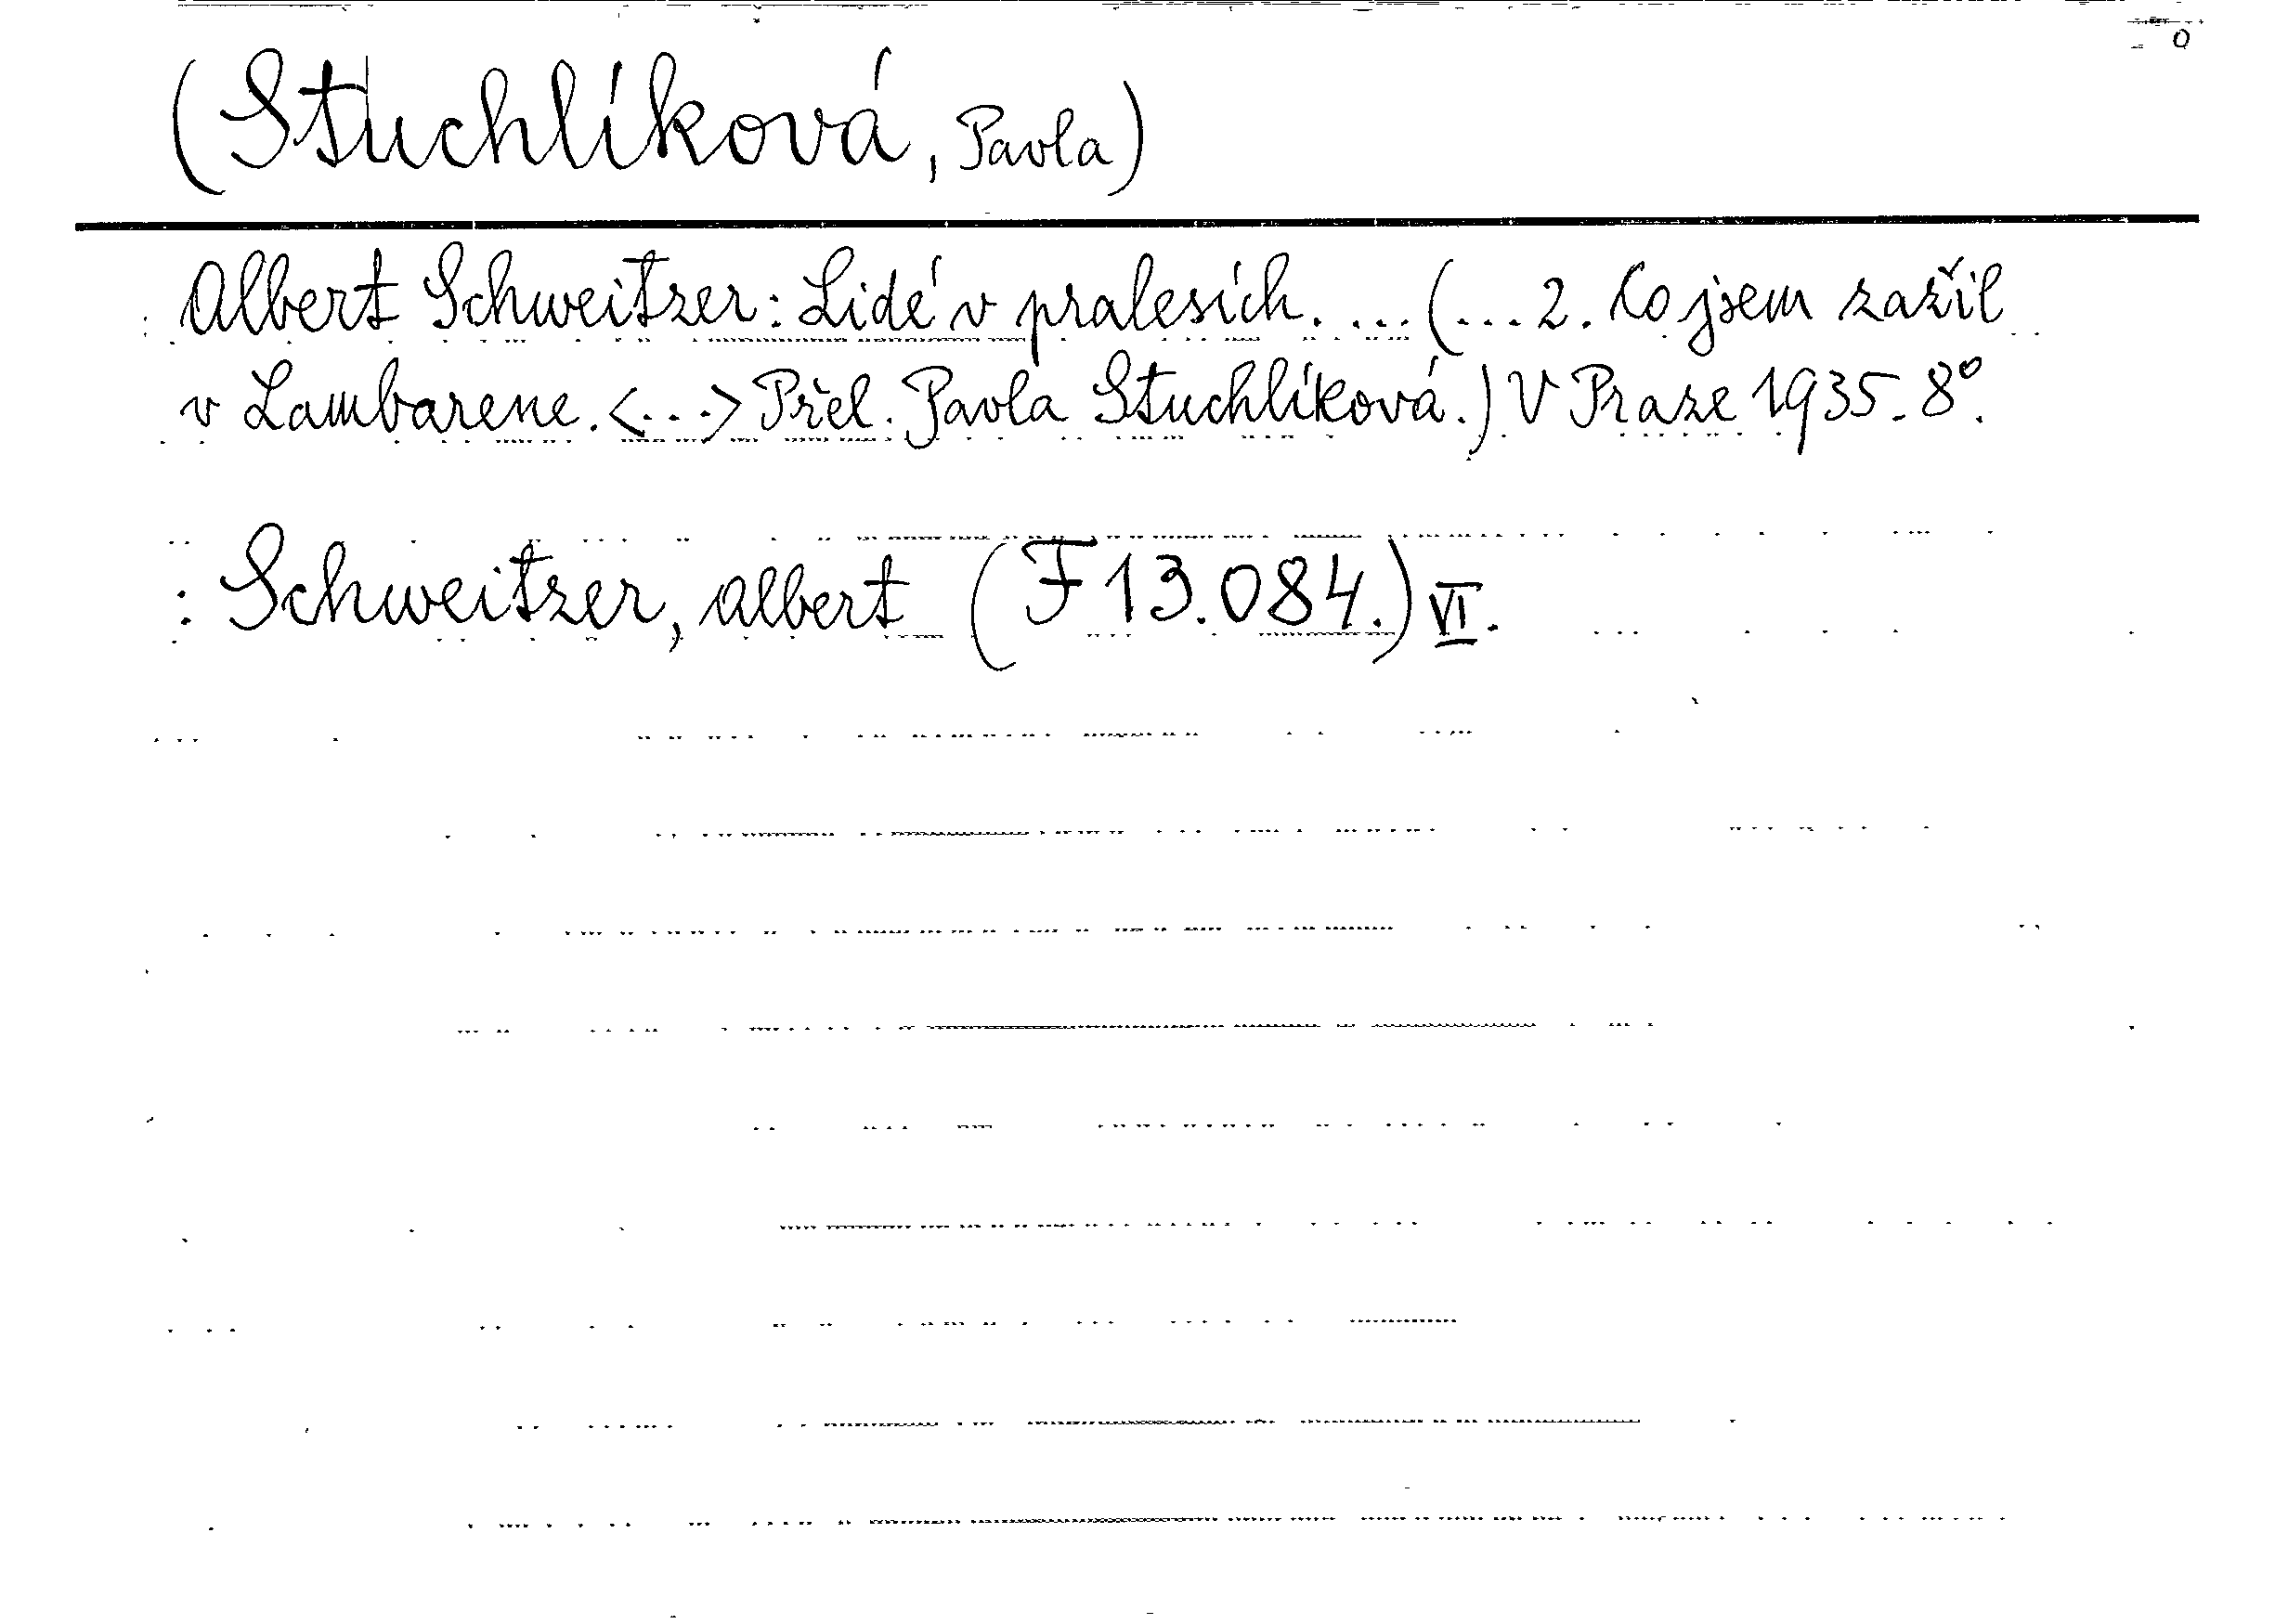 (Stuchlíková, Pavla)
Albert Schweitzer: Lidé v pralesích. ... (... 2. Co jsem zažil
v Lambarene. <...> Přel. Pavla Stuchlíková.) V Praze 1935. 8°.
: Schweitzer, Albert (F 13.084.) VI.